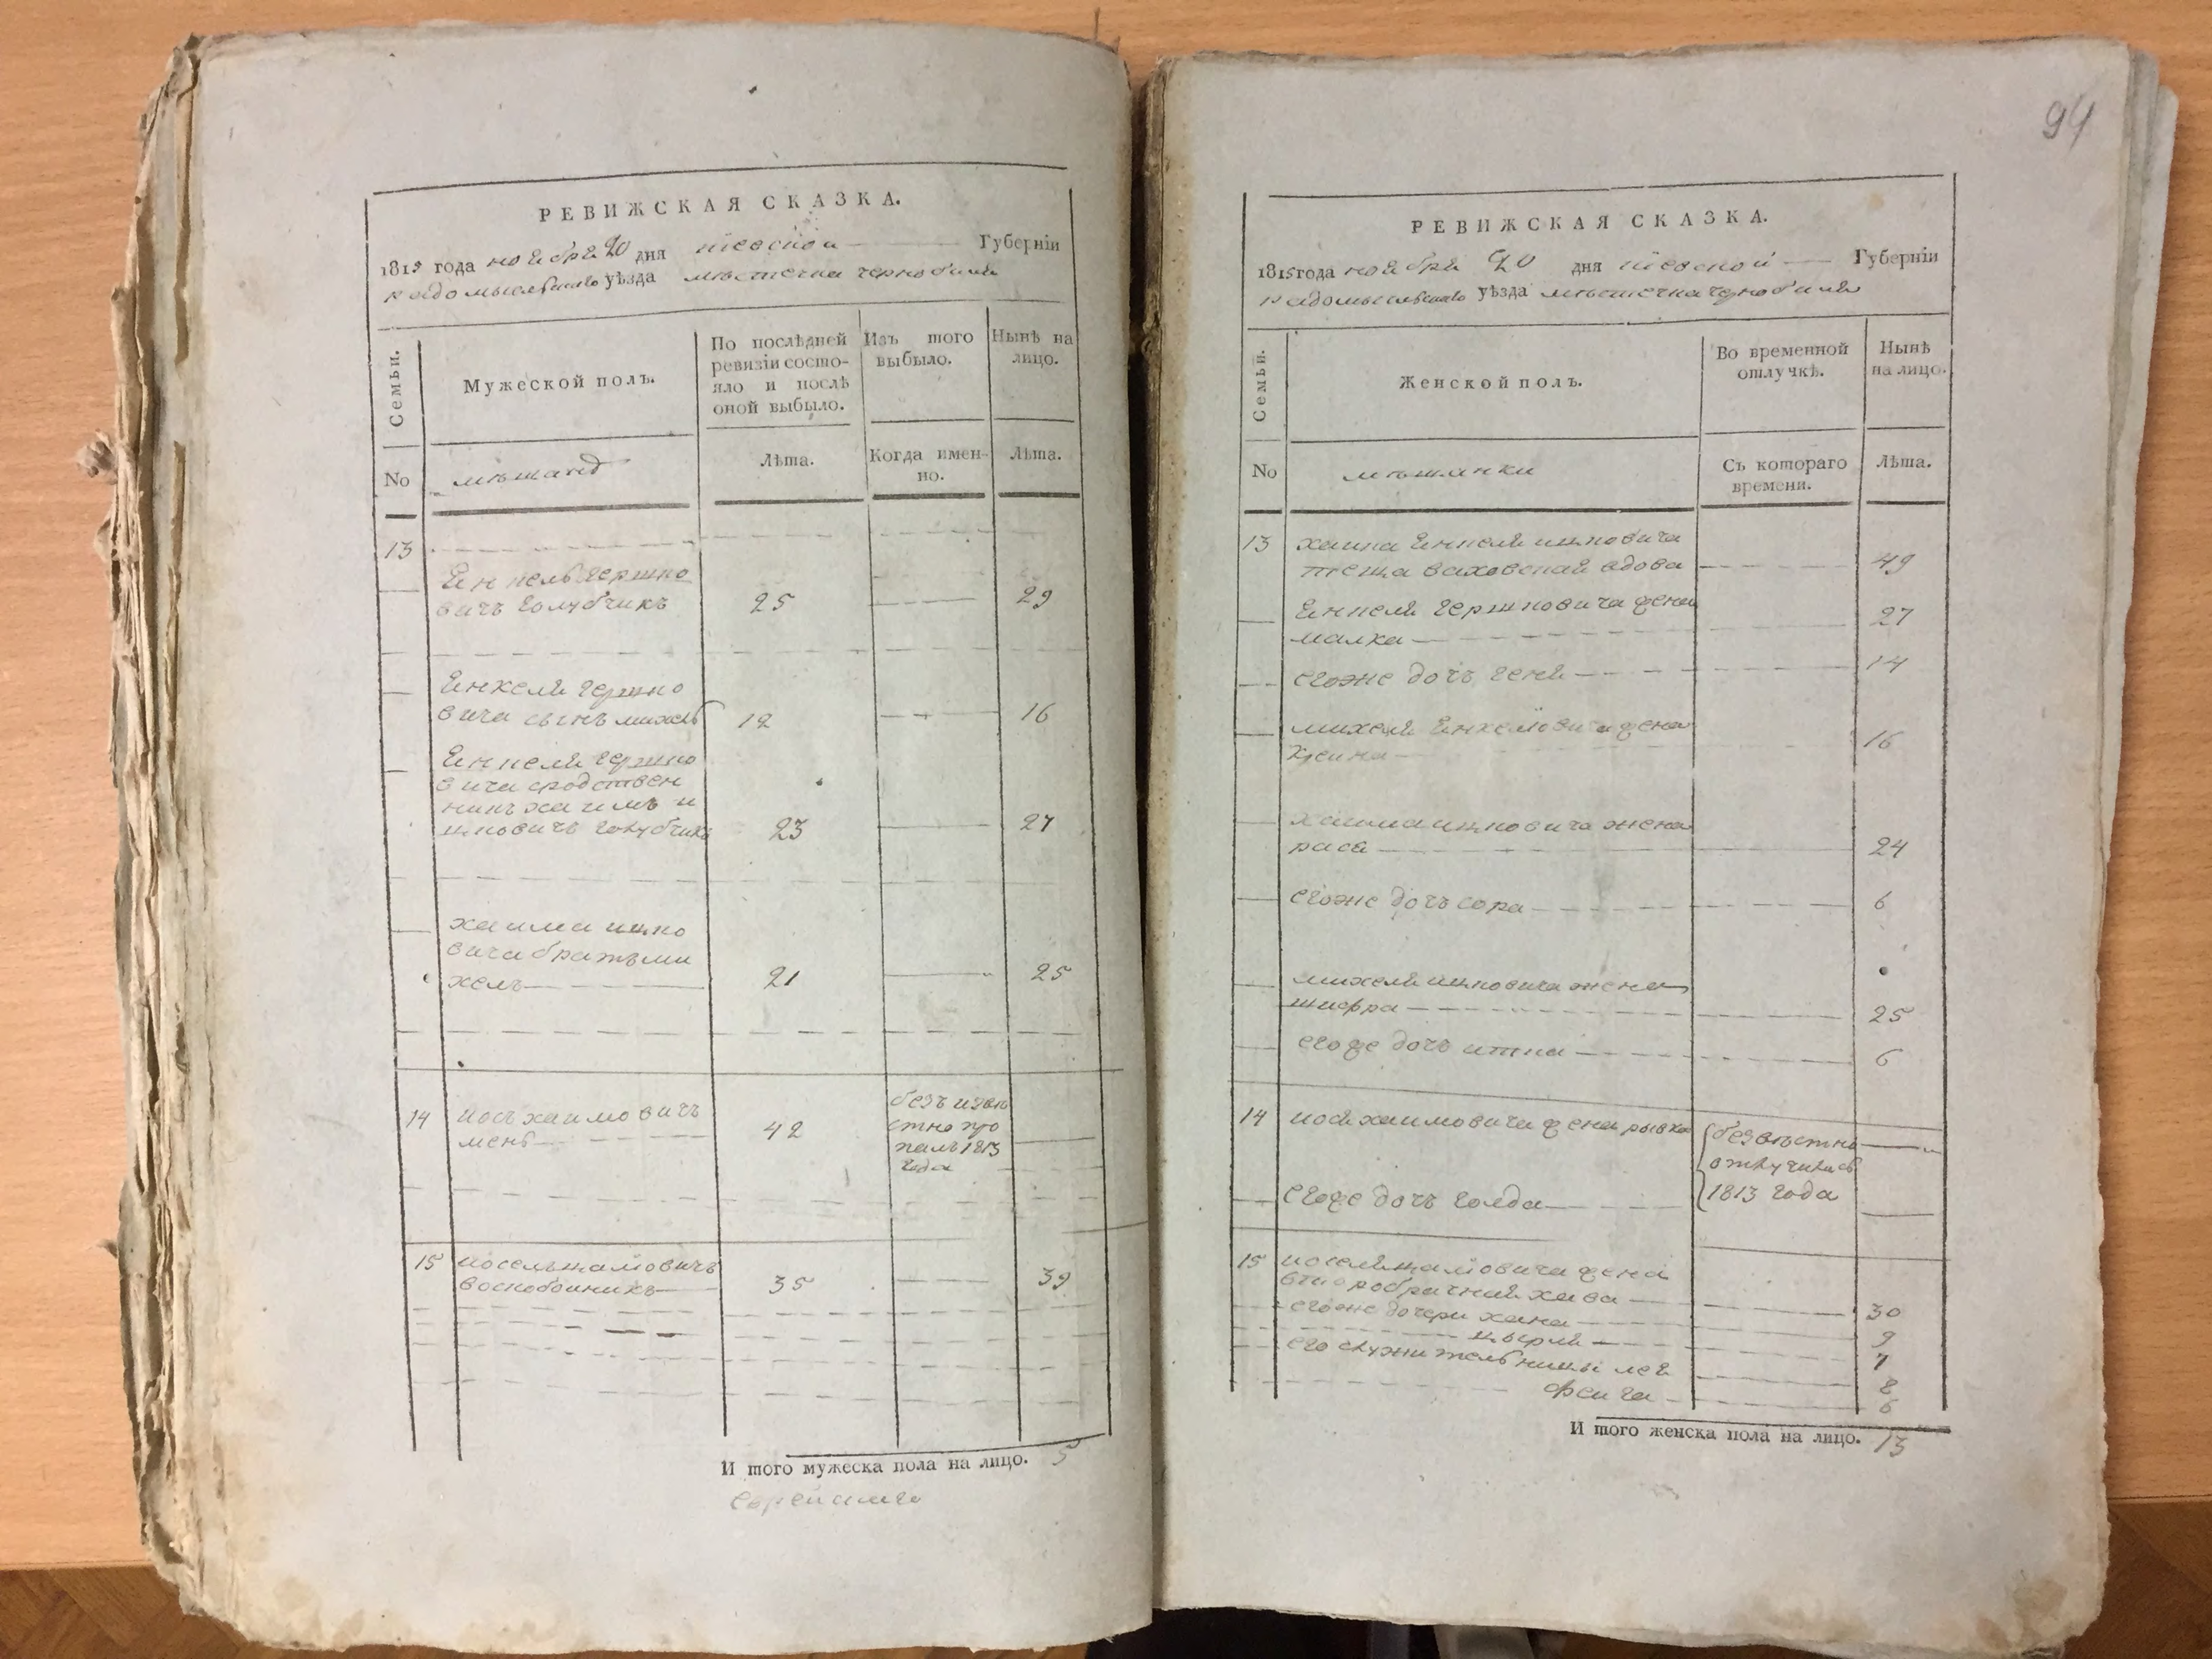 РЕВИЖСКАЯ СКАЗКА.
1815 года ноября 20 дня киевской Губерніи
радомысльскаго уѣзда мѣстечка чернобиля
Семьи.
Мужеской полъ.
По послѣдней ревизіи состо-
яло и послѣ
оной выбыло.
Изъ того
выбыло.
Нынѣ на
лицо.
No
мещанъ
Лѣта.
Когда имен-
но.
Лѣта.
13
Янкель гершко
вичъ голубчикъ 25 29
Янкеля гершко
вича сынъ михель 12 16
Янкеля гершко
вича сродствен
никъ хаимъ и
цковичъ голубчикъ 23 27
хаима ицко
вича братъ ми
хель 21 25
14 иось хаимовичъ 42 безъ извѣ
стно про
палъ 1813
года
15 иосель
воскобоиникъ 35 39
И того мужеска пола на лицо. 5
94
РЕВИЖСКАЯ СКАЗКА.
1815 года ноября 20 дня киевской Губерніи
радомысльскаго уѣзда мѣстечка чернобиля
Семьи.
Женской полъ.
Во временной
отлучкѣ.
Нынѣ
на лицо.
No
мѣщанки
Съ котораго
времени.
Лѣта.
13 ицковича
теща вдова 49
Янкеля гершковича жена
малка 27
егоже дочъ геня 14
михеля Янкеловича жена
16
хаима ицковича жена
рася 24
егоже дочъ сора 6
михеля ицковича жена
шифра 25
егоже дочъ итка 6
14 иося хаимовича жена рывка безвѣстно
отлучилась
1813 года
егоже дочъ голда
15 иоселя жена
второбрачная хава 30
егоже дочери хана 9
цырля 7
его служительницы лея 8
феига 6
И того женска пола на лицо. 13